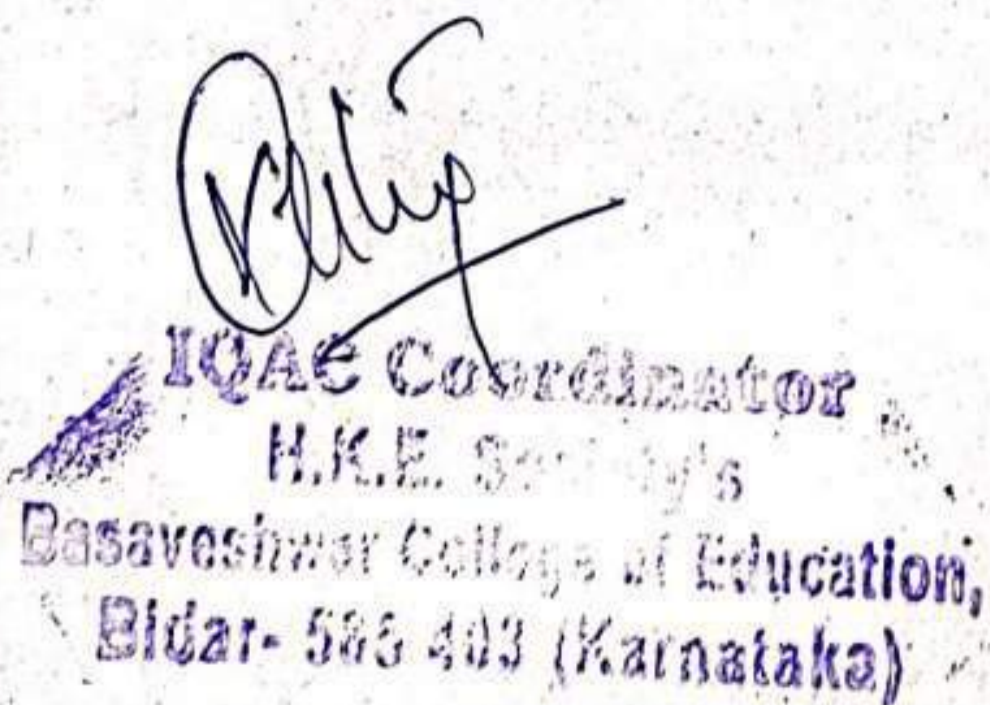 IQAC Coordinator
H.K.E. Society's
Basaveshwar College of Education,
Bidar- 585 403 (Karnataka)